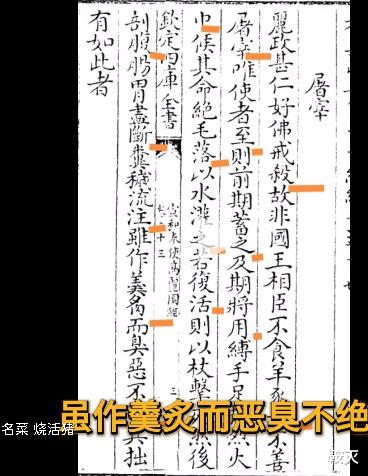 屠宰
麗政甚仁好佛戒殺故非國王相臣不食羊豕不善
屠宰唯使者至則前期蓄之及期將用縛手足火
中候其命絶毛落以水灌之若復活則以杖擊然後
欽定四庫全書
宣和奉使高麗圖經
三
剖腹腸胃盡斷糞穢流注雖作羮胾而臭惡不其拙
有如此者
虽作羹炙而恶臭不绝
名菜 烧活猪